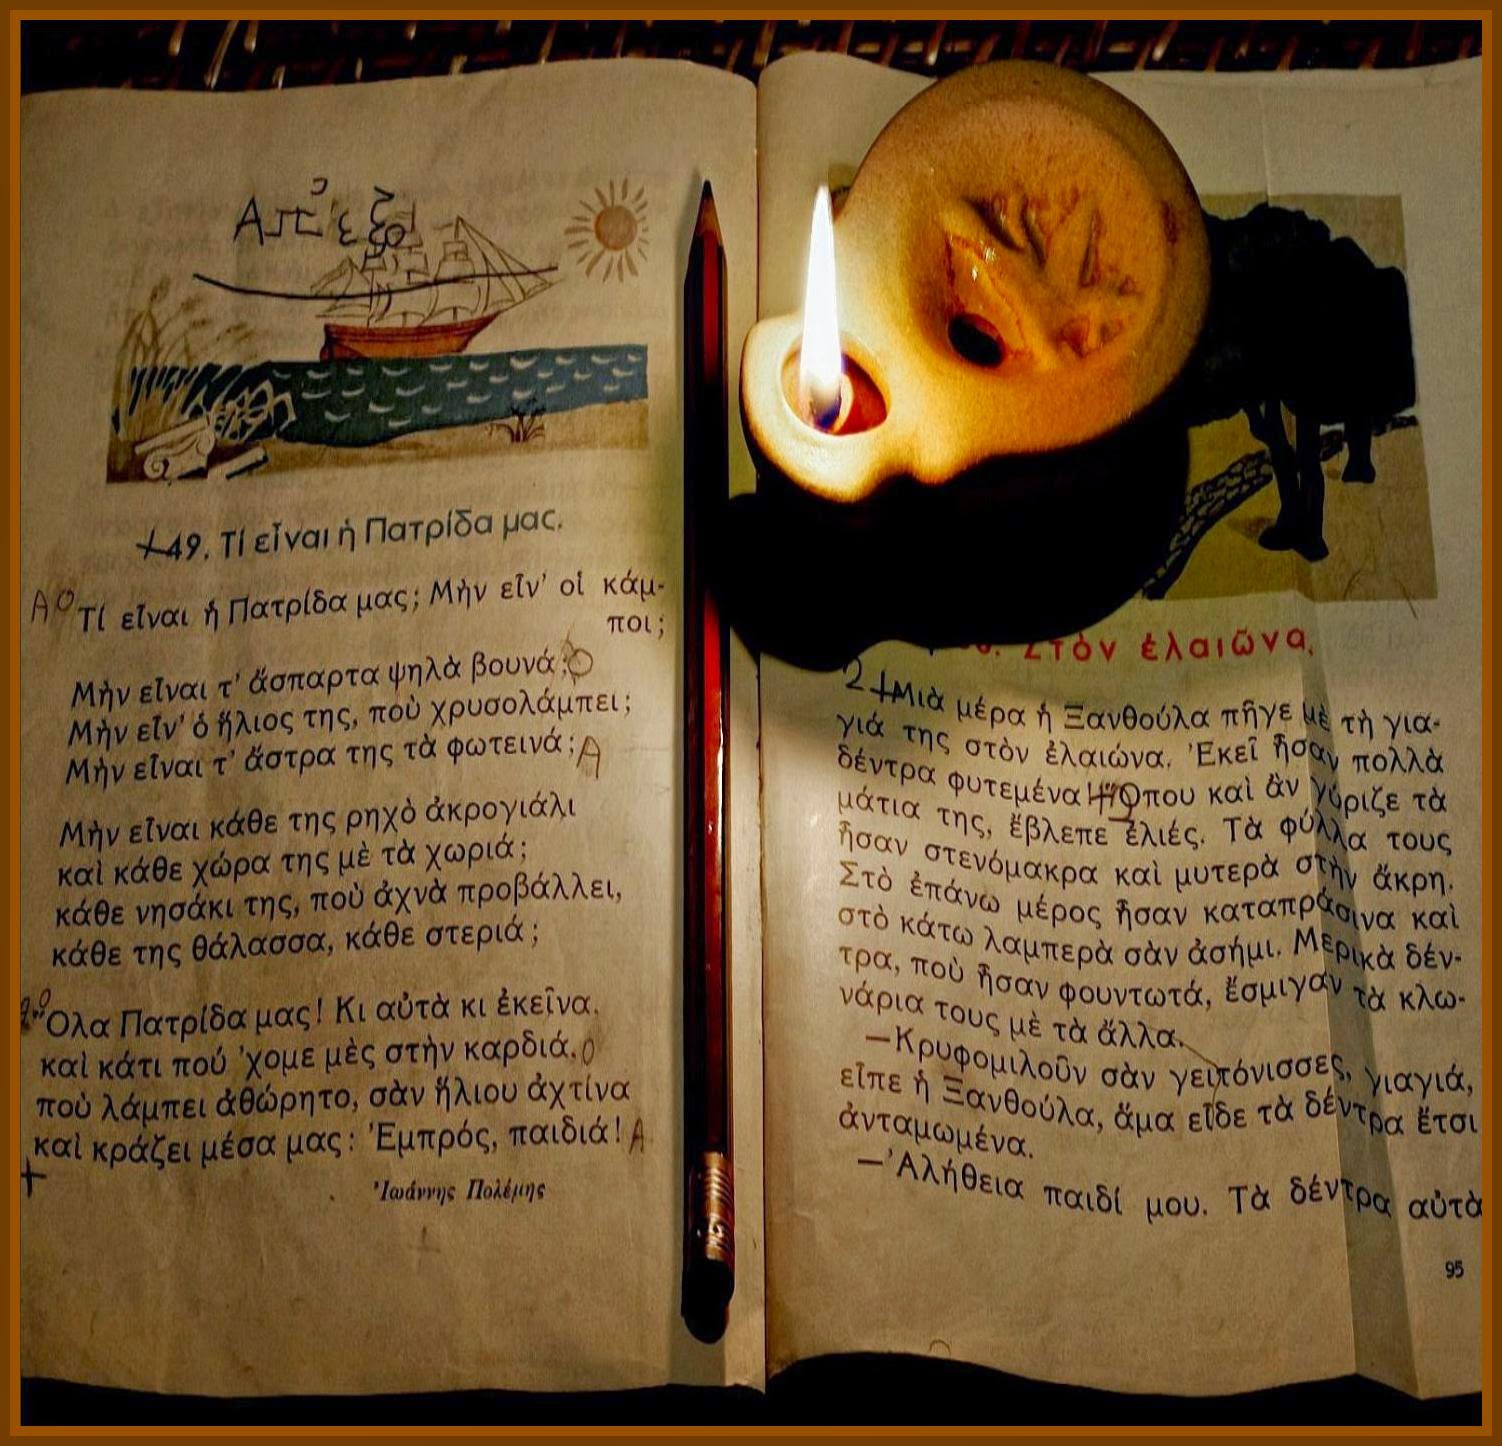 Ἀπ' ἔξω
49. Τί εἶναι ἡ Πατρίδα μας.
Τί εἶναι ἡ Πατρίδα μας; Μὴν εἶν' οἱ κάμ-
ποι;
Μὴν εἶναι τ' ἄσπαρτα ψηλὰ βουνά;
Μὴν εἶν' ὁ ἥλιος της, ποὺ χρυσολάμπει;
Μὴν εἶναι τ' ἄστρα της τὰ φωτεινά;
Μὴν εἶναι κάθε της ρηχὸ ἀκρογιάλι
καὶ κάθε χώρα της μὲ τὰ χωριά;
κάθε νησάκι της, ποὺ ἀχνὰ προβάλλει,
κάθε της θάλασσα, κάθε στεριά;
Ὅλα Πατρίδα μας! Κι αὐτὰ κι ἐκεῖνα.
καὶ κάτι πού 'χομε μὲς στὴν καρδιά.
ποὺ λάμπει ἀθώρητο, σὰν ἥλιου ἀχτίνα
καὶ κράζει μέσα μας: Ἐμπρός, παιδιά!
Ἰωάννης Πολέμης
Στὸν ἐλαιῶνα.
2 Μιὰ μέρα ἡ Ξανθούλα πῆγε μὲ τὴ για-
γιά της στὸν ἐλαιώνα. Ἐκεῖ ἦσαν πολλὰ
δέντρα φυτεμένα! Ὅπου καὶ ἂν γύριζε τὰ
μάτια της, ἔβλεπε ἐλιές. Τὰ φύλλα τους
ἦσαν στενόμακρα καὶ μυτερὰ στὴν ἄκρη.
Στὸ ἐπάνω μέρος ἦσαν καταπράσινα καὶ
στὸ κάτω λαμπερὰ σὰν ἀσήμι. Μερικὰ δέν-
τρα, ποὺ ἦσαν φουντωτά, ἔσμιγαν τὰ κλω-
νάρια τους μὲ τὰ ἄλλα.
—Κρυφομιλοῦν σὰν γειτόνισσες, γιαγιά,
εἶπε ἡ Ξανθούλα, ἅμα εἶδε τὰ δέντρα ἔτσι
ἀνταμωμένα.
—Ἀλήθεια παιδί μου. Τὰ δέντρα αὐτὰ
95